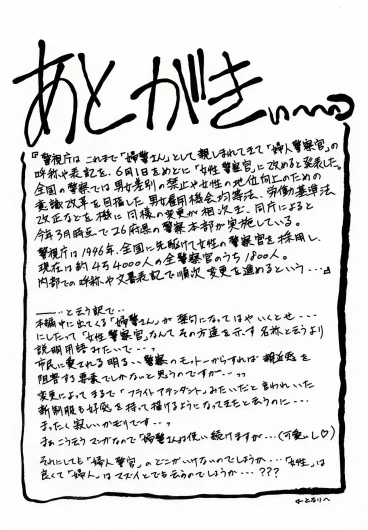 あとがきぃ～～っ
『警視庁はこれまで「婦警さん」として親しまれてきて「婦人警察官」の
呼称や表記を、6月1日をめどに「女性警察官」に改めると発表した。
全国の警察では男女差別の禁止や女性の地位向上のための
意識改革を目指した男女雇用機会均等法、労働基準法
改正などを機に同様の変更が相次ぎ、同庁によると
今年3月時点で26府県の警察本部が実施している。
警視庁は1946年、全国に先駆けて女性の警察官を採用し、
現在は約4万4000人の全警察官のうち1800人。
内部での呼称や文書表記で順次変更を進めるという…』
――…と云う訳で…
本編中に出てくる「婦警さん」が禁句になってはやいくとせ…
にしたって「女性警察官」なんてその方達を示す名称と云うより
説明用語みたいで…、
市民に愛される明るい警察のモットーからすれば親近感を
阻害する要素でしかないと思うのですが…、
変更によってまるで「フライトアテンダント」みたいだと言われいた
新制服も好感を持って描けるようになってきたと云うのに…
まったく寂しいかぎりです…、
まぁこう云うマンガなので「婦警さん」は使い続けますが…(可愛いし♡)
それにしても「婦人警官」のどこがいけないのでしょうか…「女性」は
良くて「婦人」はマズイとでも云うのでしょうか…???
←となりへ